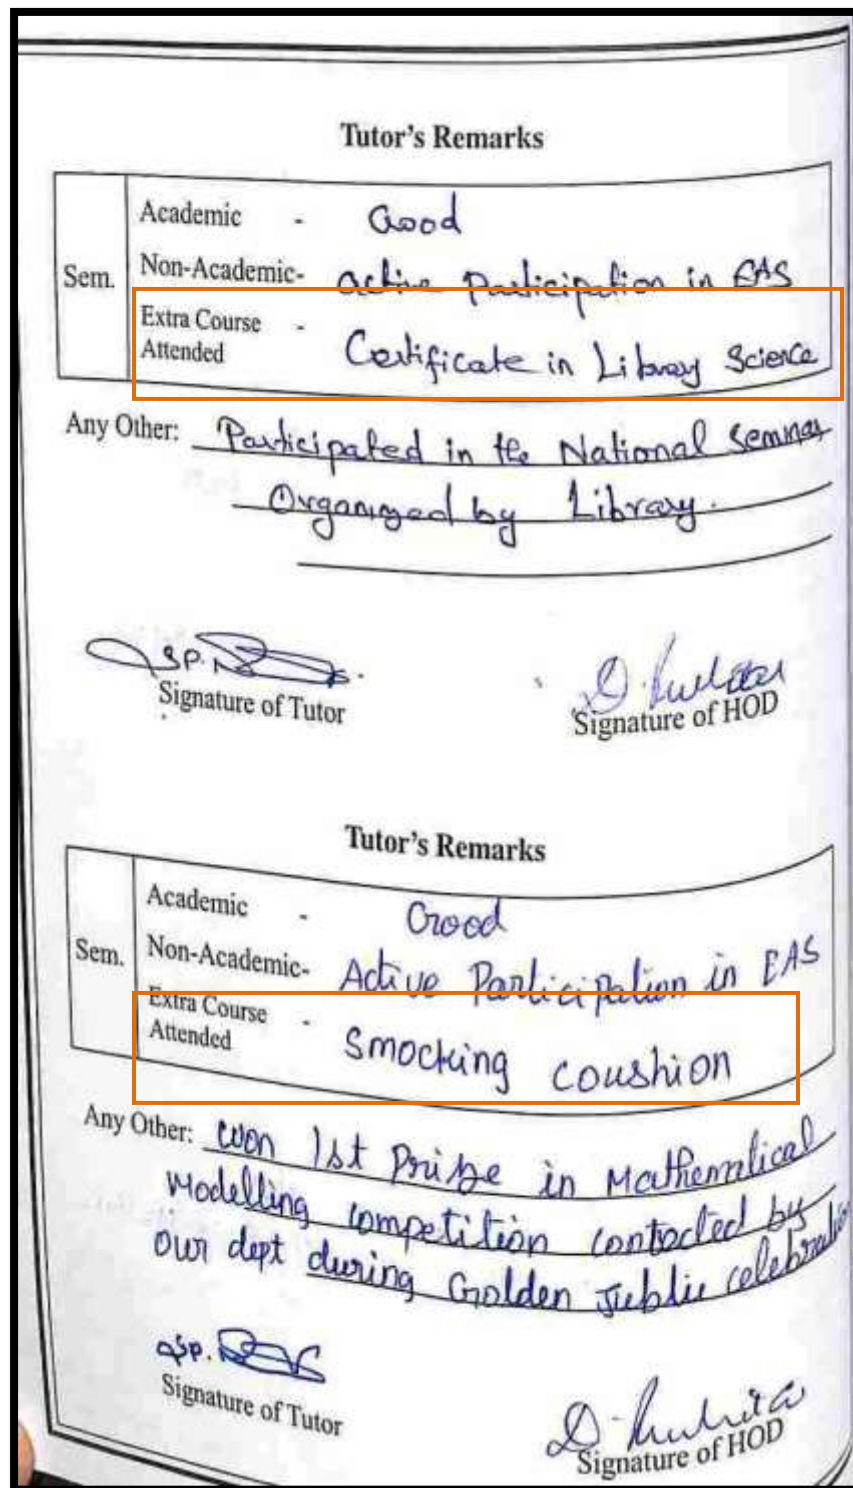 Tutor's Remarks
Academic - Good
Sem. Non-Academic- active Participation in EAS
Extra Course Attended - Certificate in Library Science
Any Other: Participated in the National Seminar
Organized by Library.
SP.
Signature of Tutor
D.
Signature of HOD
Tutor's Remarks
Academic - Good
Sem. Non-Academic- Active Participation in EAS
Extra Course Attended - Smocking coushion
Any Other: Won 1st Prize in Mathematical
Modelling competition contocted by
our dept during Golden Jublie celebration
SP.
Signature of Tutor
D.
Signature of HOD